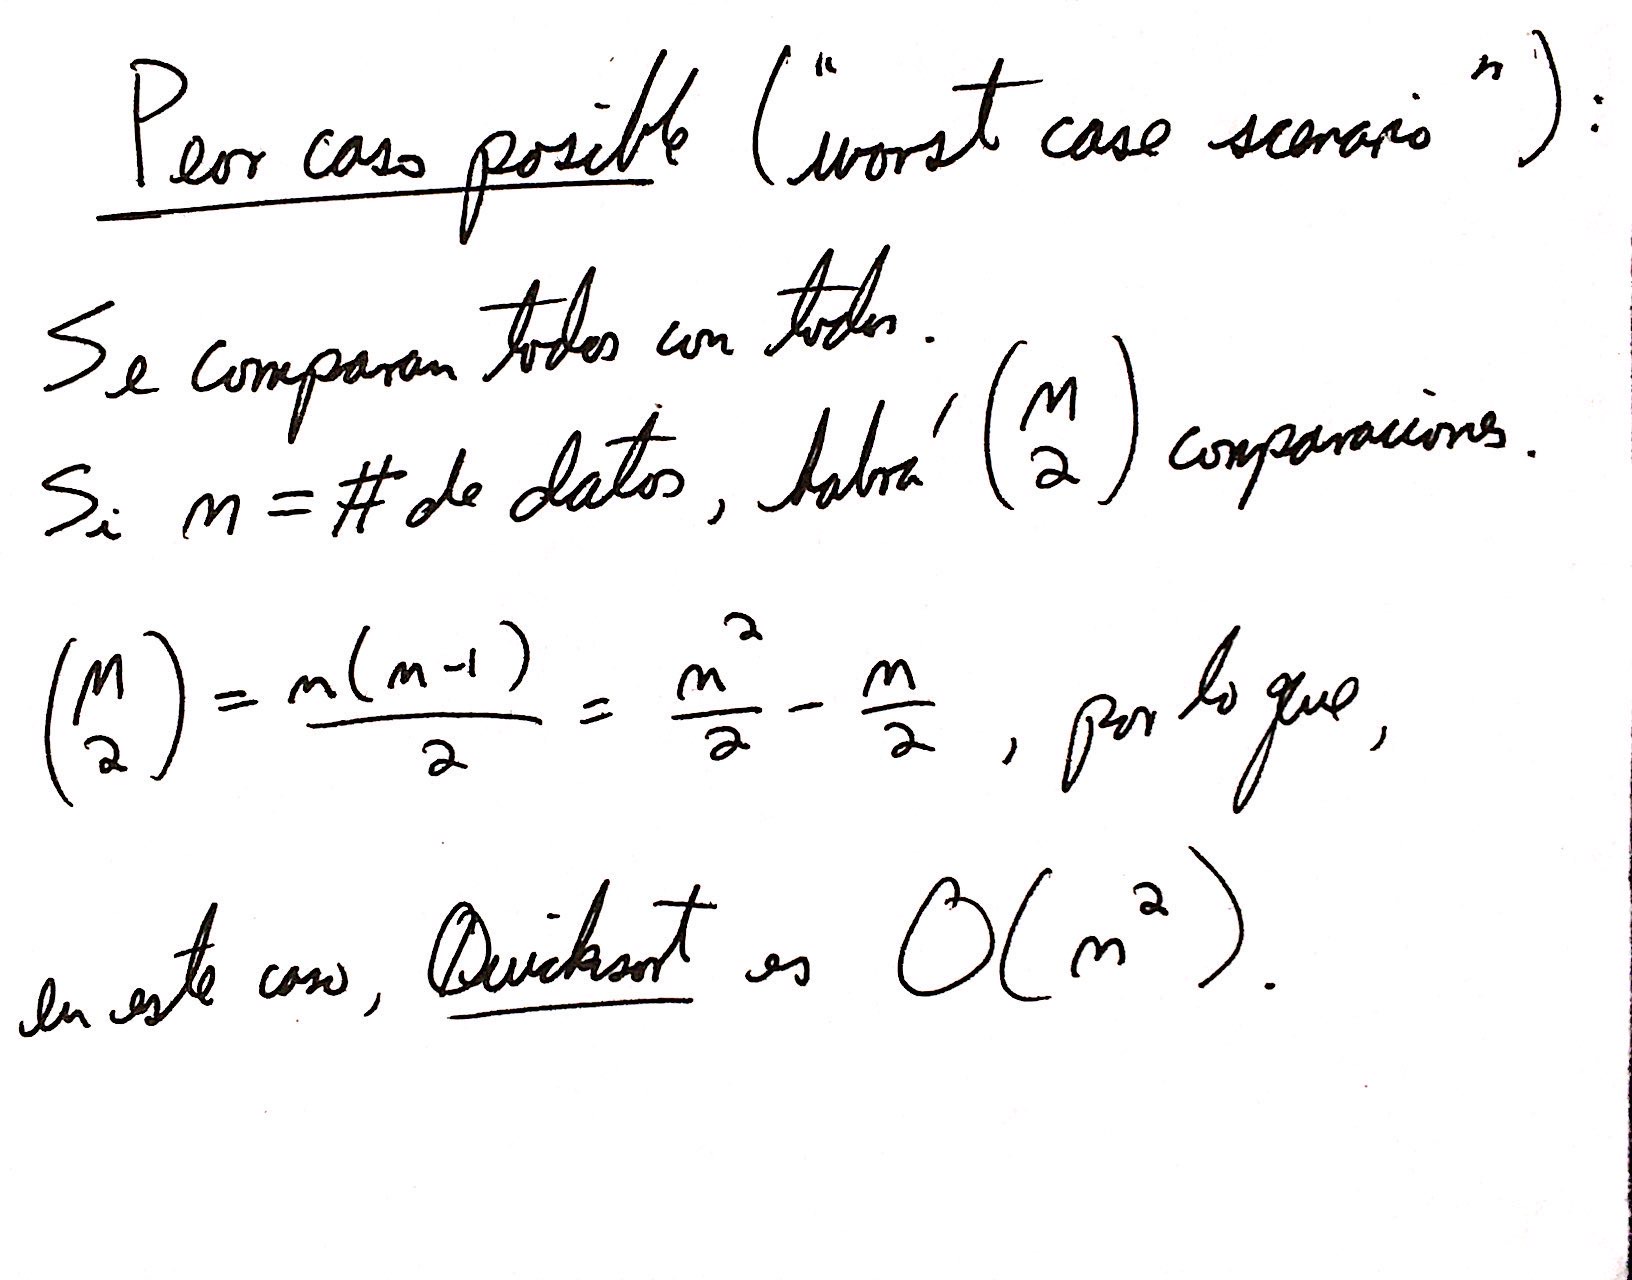 Peor caso posible ("worst case scenario"):
Se comparan todos con todos.
Si n = # de datos, habrá (n 2) comparaciones.
(n 2) = n(n-1)/2 = n²/2 - n/2, por lo que,
en este caso, Quicksort es O(n²).